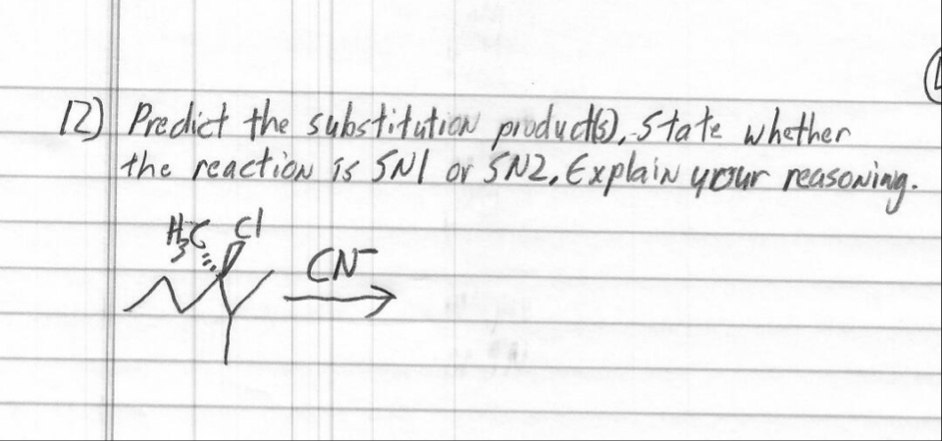 12) Predict the substitution product(s), State whether
the reaction is SN1 or SN2, Explain your reasoning.
H₃C Cl
CN⁻